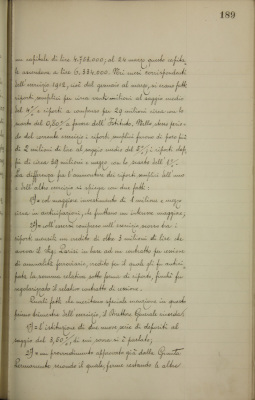 189
un capitale di lire 4.758.000; al 24 marzo questo capita-
le ascendeva a lire 6.334.000. Nei mesi corrispondenti
dell'esercizio 1912, cioè dal gennaio al marzo, si erano fatti
riporti semplici per circa venti milioni al saggio medio
del 4 % e riporti a compenso per 29 milioni circa con lo
scarto del 0,50 % a favore dell'Istituto. Nello stesso perio-
do del corrente esercizio i riporti semplici furono di poco più
di 2 milioni di lire al saggio medio del 5 %; i riporti
di circa 29 milioni e mezzo con lo scarto dell' 1 %.
La differenza fra l'ammontare dei riporti semplici dell'uno
e dell'altro esercizio si spiega con due fatti:
1º col maggiore investimento di 1 milione e mezzo
circa in anticipazioni, che fruttano un interesse maggiore;
2º coll'essersi compresa nell'esercizio scorso tra i
riporti avente un credito di oltre 3 milioni di lire che
aveva il in base ad un contratto per cessione
di annualità ferroviarie, credito per il quale gli fu anticipata
la somma relativa sotto forma di riporto, finché fu
regolarizzato il relativo contratto di cessione.
Quali fatti che meritano speciale menzione in questo
primo bimestre dell'esercizio, il Direttore Generale ricorda:
1º l'istituzione di due nuove serie di depositi al
saggio del 3,50 %, di cui
2º un provvedimento approvato già dalla Giunta
Permanente secondo il quale, fermo restando le altre